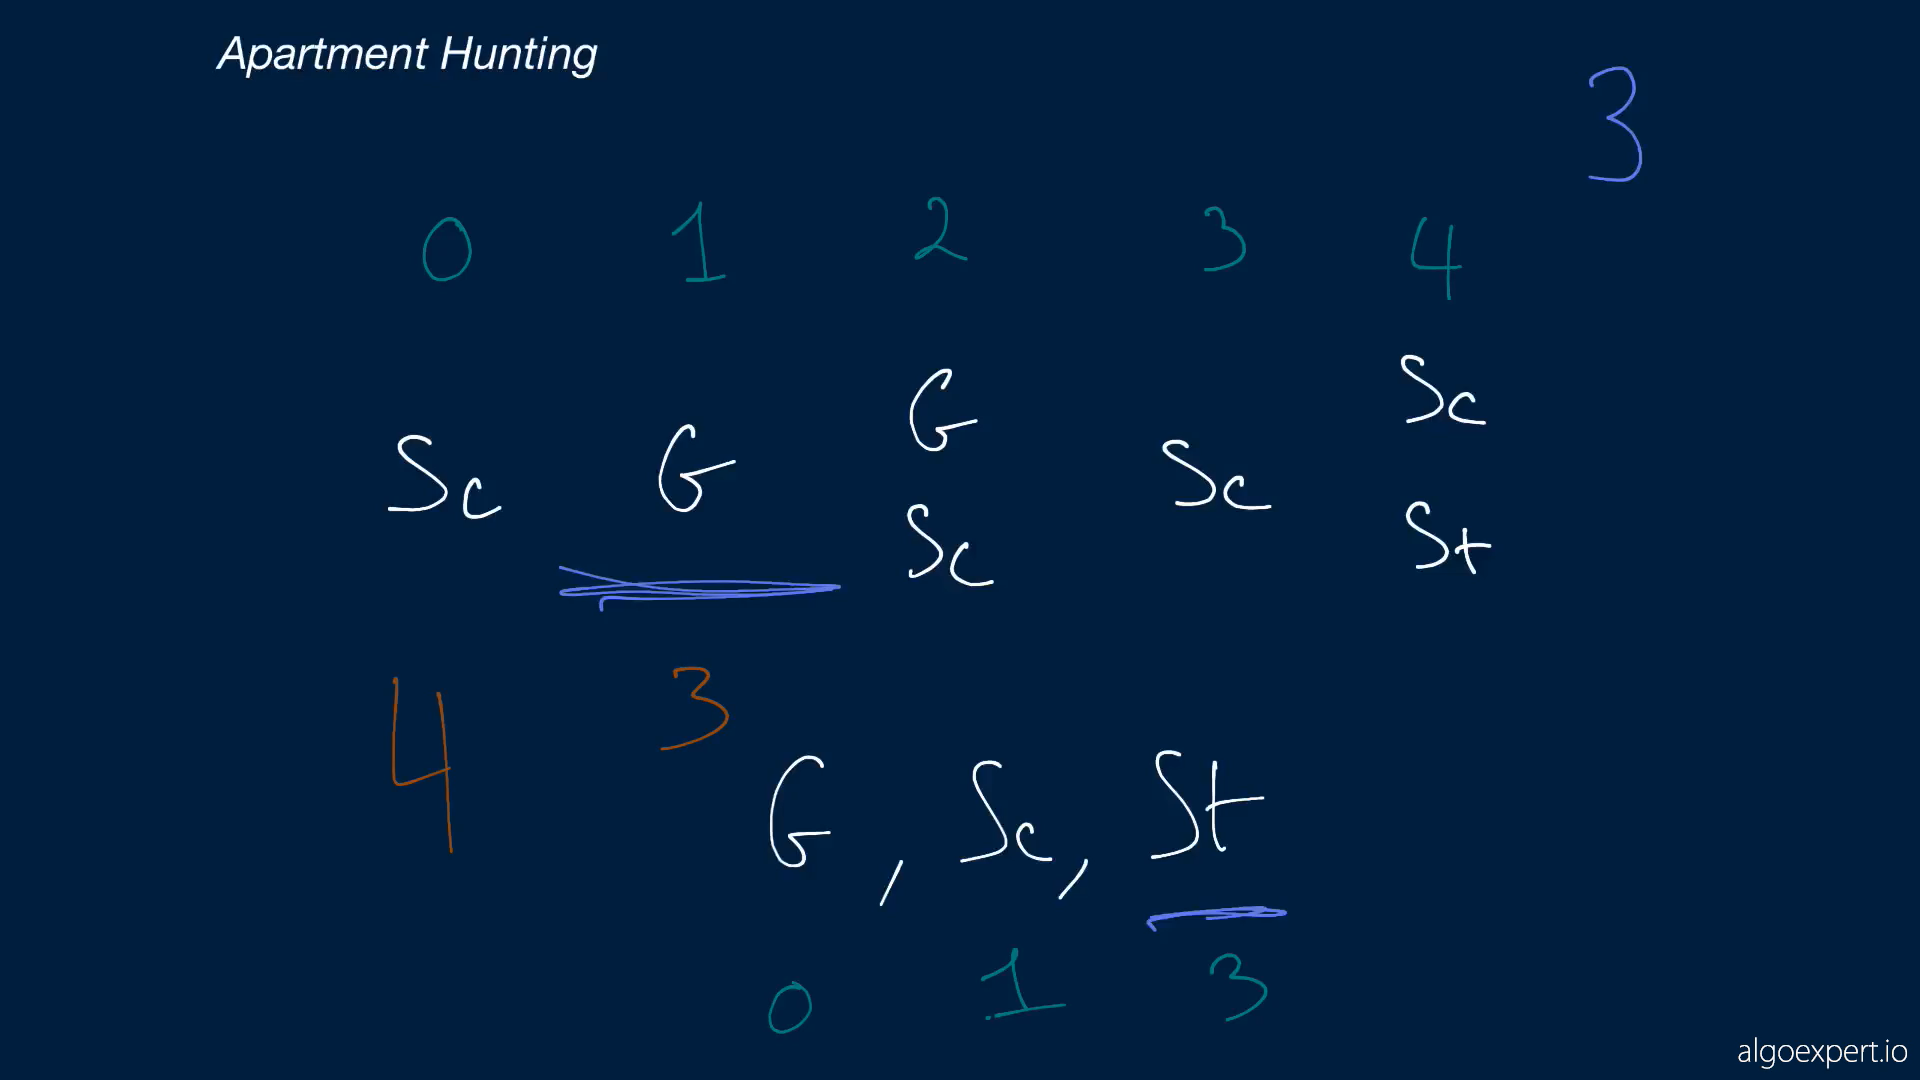 Apartment Hunting
3
0 1 2 3 4
G Sc
Sc G Sc
Sc St
4 3
G, Sc, St
0 1 3
algoexpert.io